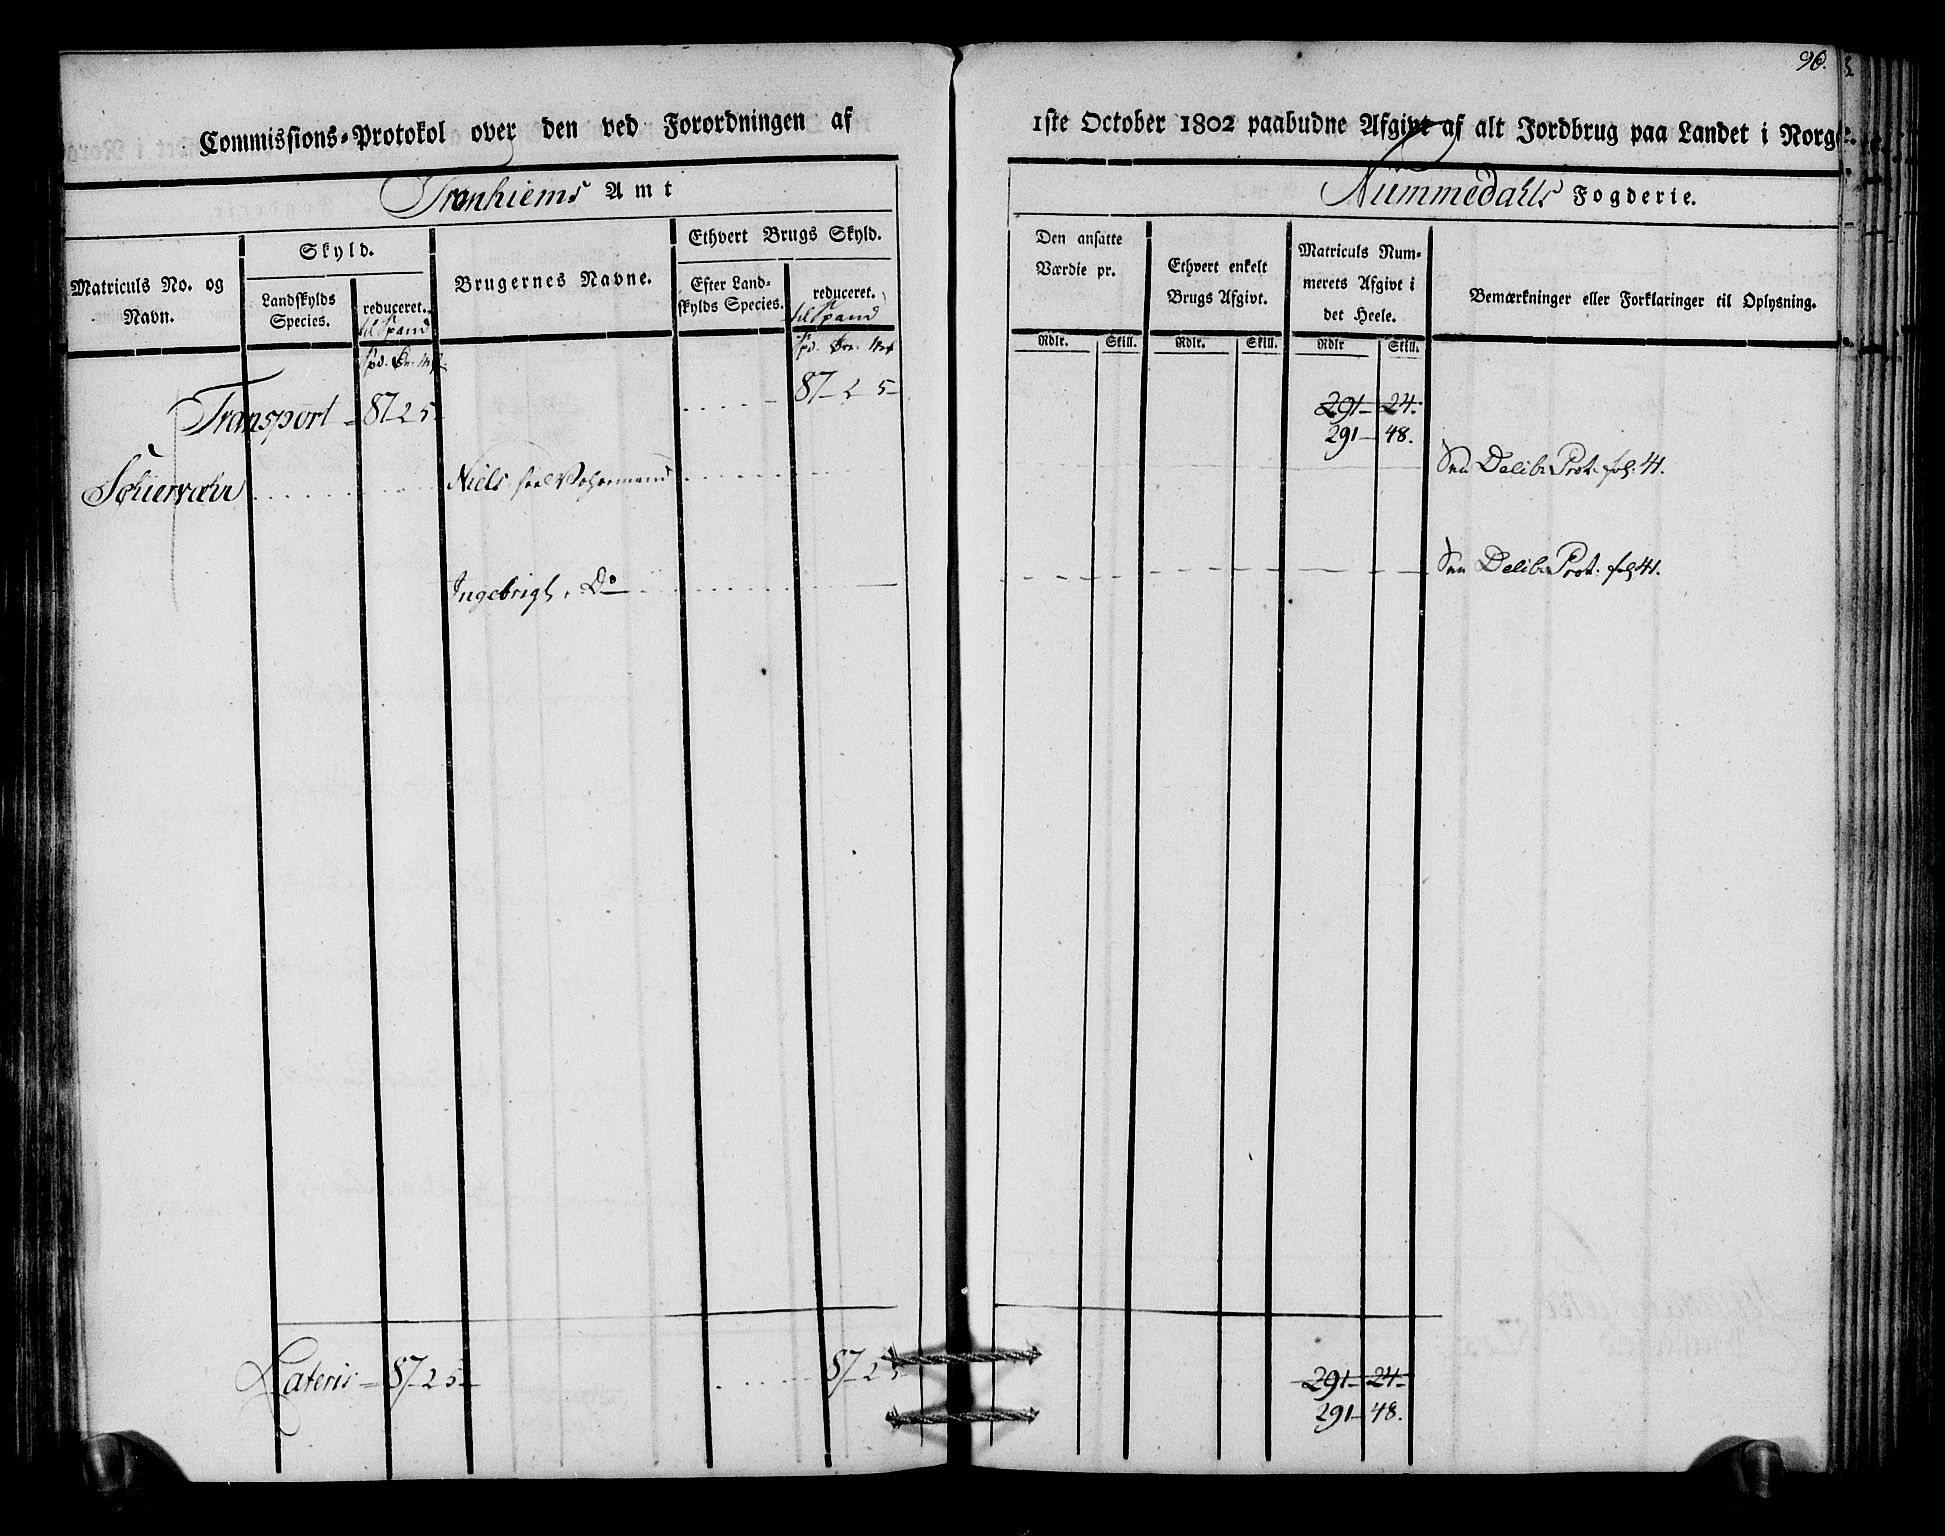 96.
Commissions-Protokol over den ved Forordningen af 1ste October 1802 paabudne Afgivt af alt Jordbrug paa Landet i Norge.
Tronhiems Amt
Nummedahls Fogderie.
Matriculs No. og Navn.
Skyld.
Landskylds Species.
reduceret.
til Spand
Spd. Ør. Mk.
Brugernes Navne.
Ethvert Brugs Skyld.
Efter Landskylds Species.
reduceret.
til Spand
Spd. Øre. Mk
Den ansatte Værdie pr.
Rdlr. Skill.
Ethvert enkelt Brugs Afgivt.
Rdlr. Skill.
Matriculs Nummerets Afgivt i det Heele.
Rdlr Skill.
Bemærkninger eller Forklaringer til Oplysning.
Transport - 87 2 5 - 87 - 2 5 - 291 - 24.
291 - 48.
Niels Delib. Prot. fol: 41.
Ingebrigt, Do Delib. Prot. fol: 41.
Lateris - 87 - 2 5 - 87 - 2 5 291 - 24 -
291 - 48.